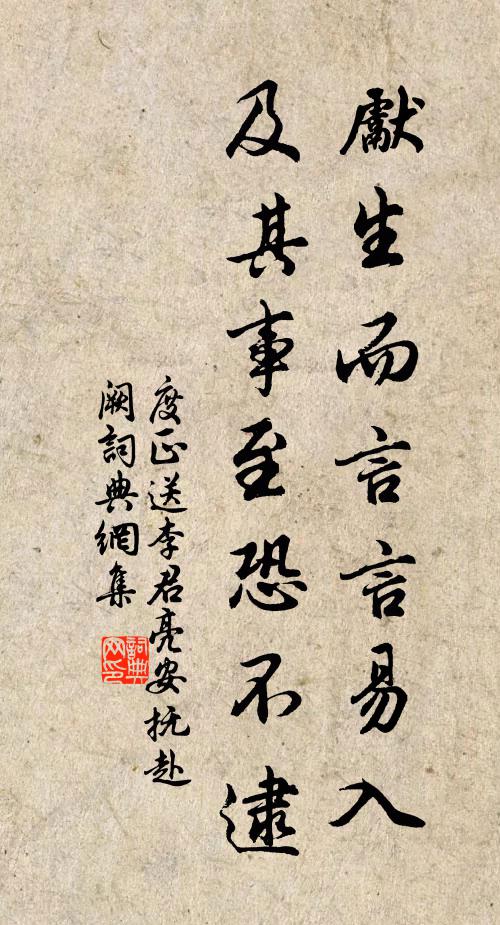 獻生而言言易入
及其事至恐不逮
度正送李君亮安抚赴
阙詞典網集
詞典
网印